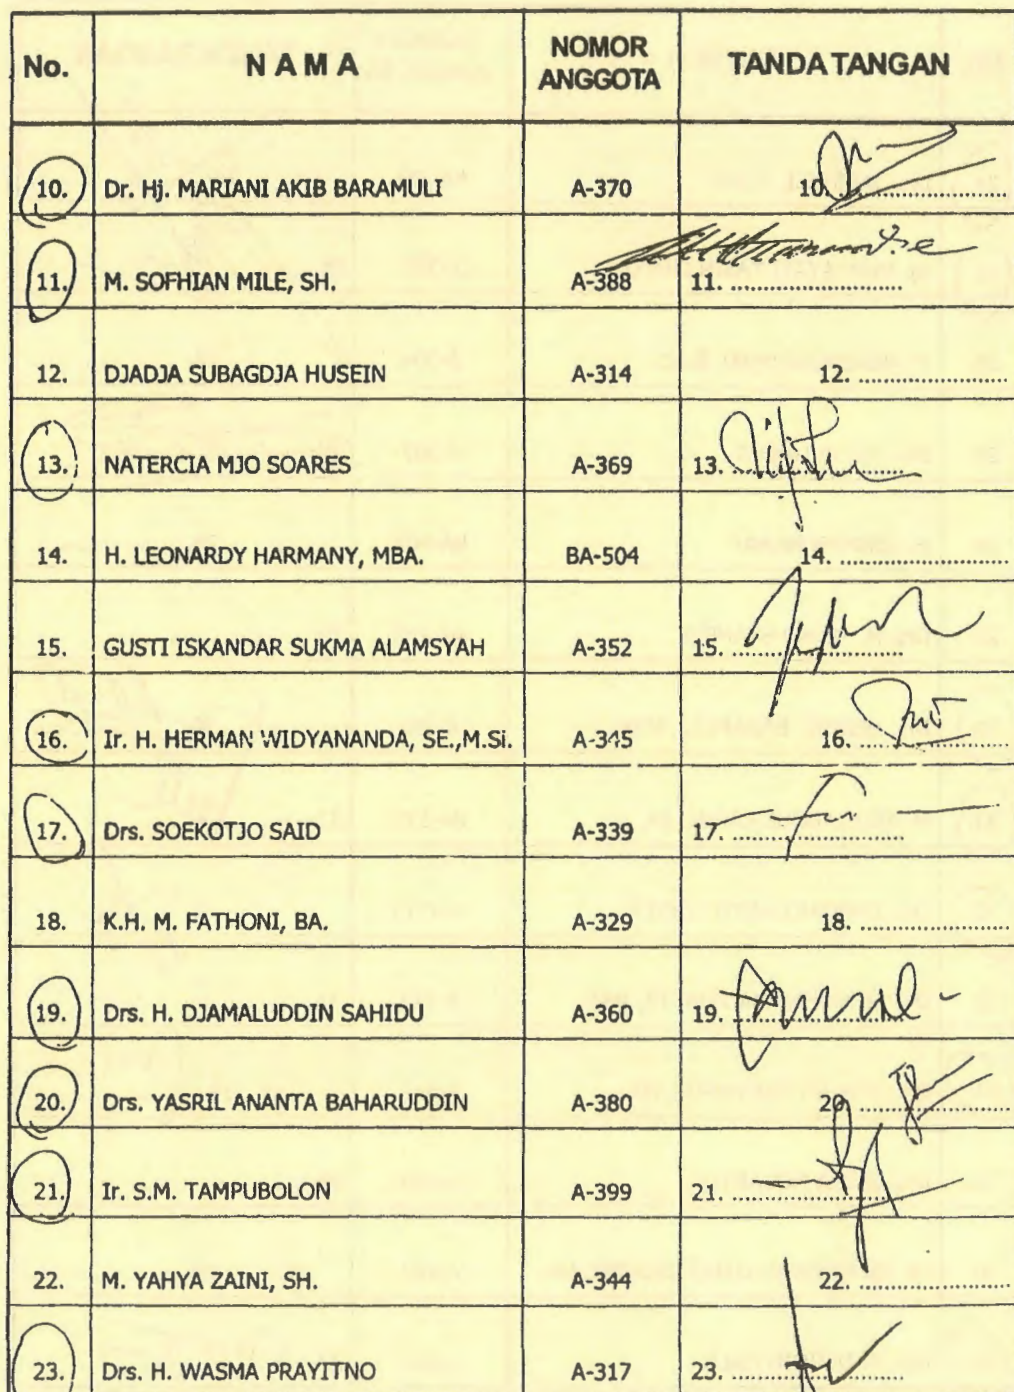 No. N A M A NOMOR ANGGOTA TANDA TANGAN
10. Dr. Hj. MARIANI AKIB BARAMULI A-370 10.
11. M. SOFHIAN MILE, SH. A-388 11. ........................
12. DJADJA SUBAGDJA HUSEIN A-314 12. ........................
13. NATERCIA MJO SOARES A-369 13. ........................
14. H. LEONARDY HARMANY, MBA. BA-504 14. ........................
15. GUSTI ISKANDAR SUKMA ALAMSYAH A-352 15. ........................
16. Ir. H. HERMAN WIDYANANDA, SE.,M.Si. A-345 16. ........................
17. Drs. SOEKOTJO SAID A-339 17. ........................
18. K.H. M. FATHONI, BA. A-329 18. ........................
19. Drs. H. DJAMALUDDIN SAHIDU A-360 19. ........................
20. Drs. YASRIL ANANTA BAHARUDDIN A-380 20. ........................
21. Ir. S.M. TAMPUBOLON A-399 21. ........................
22. M. YAHYA ZAINI, SH. A-344 22. ........................
23. Drs. H. WASMA PRAYITNO A-317 23. ........................